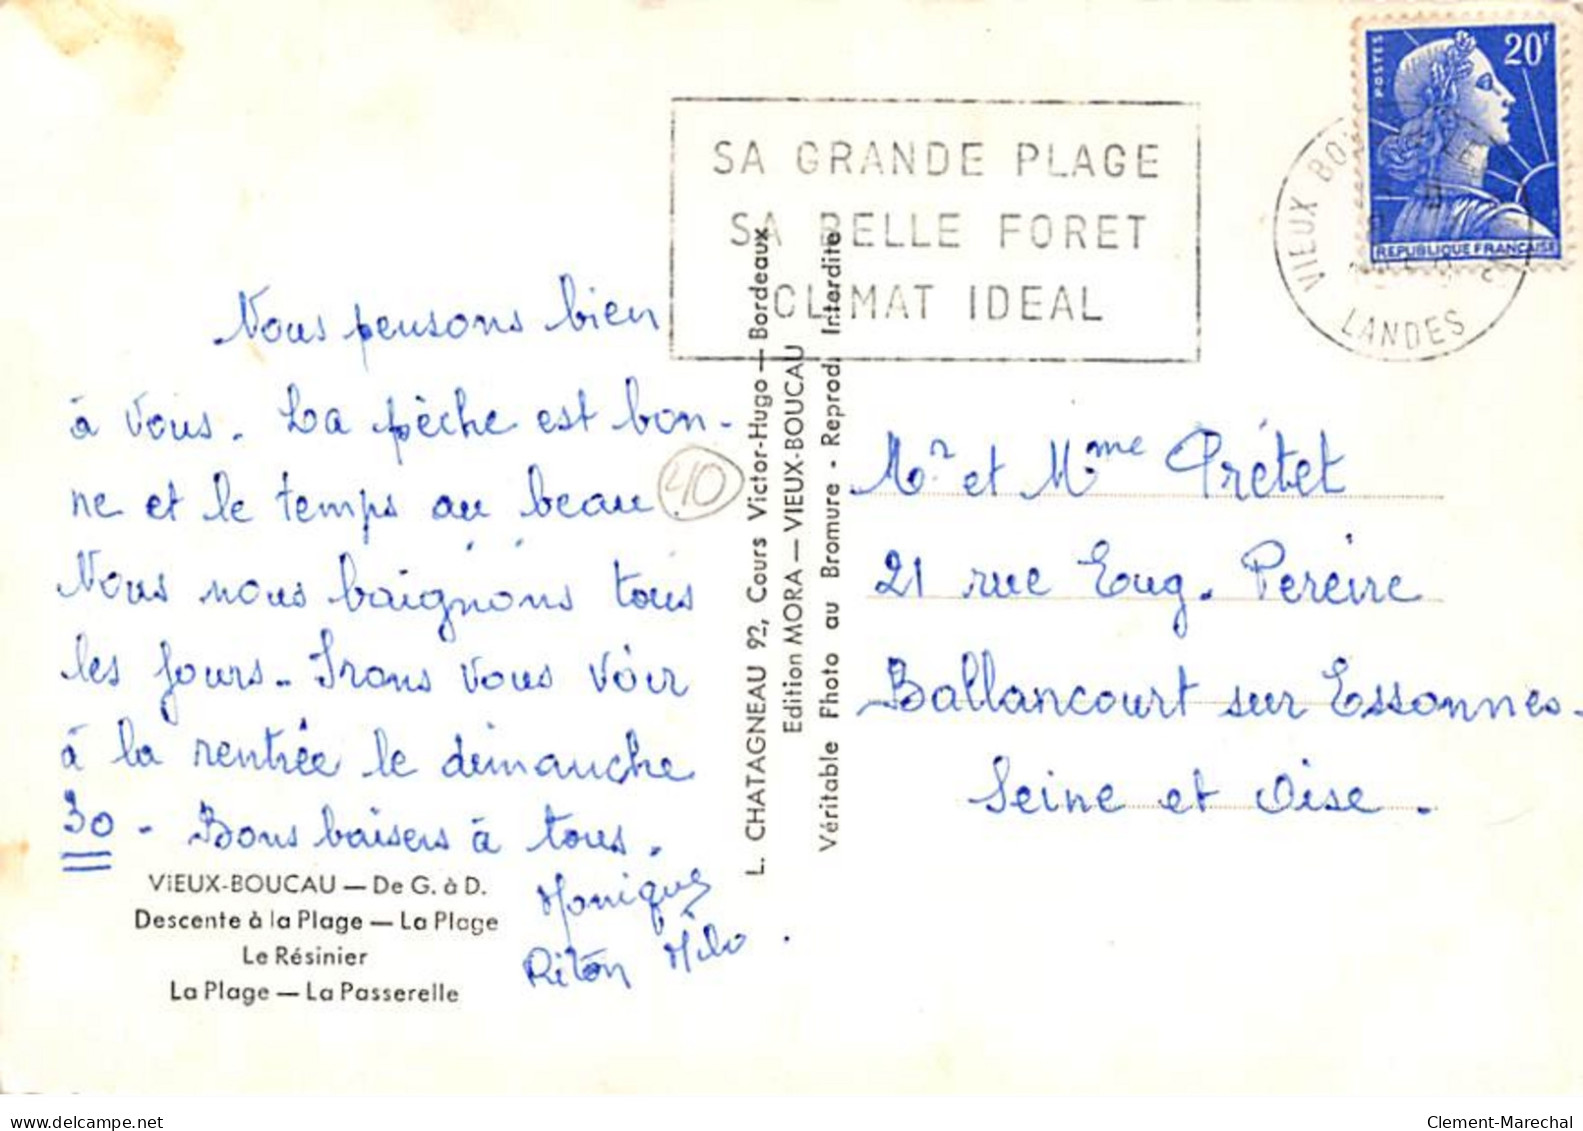 20F
POSTES
REPUBLIQUE FRANÇAISE
SA GRANDE PLAGE
SA BELLE FORET
CLIMAT IDEAL
VIEUX
LANDES
Nous pensons bien
à vous. La pêche est bon-
ne et le temps au beau.
Nous nous baignons tous
les jours. Irons vous voir
à la rentrée le dimanche
30 - Bons baisers à tous.
Monique
Riton Milo.
40
VIEUX-BOUCAU — De G. à D.
Descente à la Plage — La Plage
Le Résinier
La Plage — La Passerelle
L. CHATAGNEAU 92, Cours Victor-Hugo — Bordeaux
Edition MORA — VIEUX-BOUCAU
Véritable Photo au Bromure - Reprod. Interdite
Mr et Mme Prétet
21 rue Eug. Pereire
Ballancourt sur Essonnes.
Seine et Oise.
www.delcampe.net
Clement-Marechal